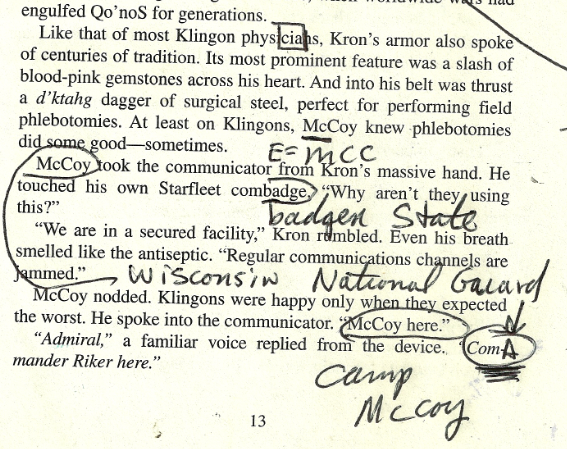 engulfed Qo'noS for generations.
Like that of most Klingon physicians, Kron's armor also spoke
of centuries of tradition. Its most prominent feature was a slash of
blood-pink gemstones across his heart. And into his belt was thrust
a d'ktahg dagger of surgical steel, perfect for performing field
phlebotomies. At least on Klingons, McCoy knew phlebotomies
did some good—sometimes.
E=mCC
McCoy took the communicator from Kron's massive hand. He
touched his own Starfleet combadge. "Why aren't they using
this?"
badger State
"We are in a secured facility," Kron rumbled. Even his breath
smelled like the antiseptic. "Regular communications channels are
jammed."
Wisconsin National Guard
McCoy nodded. Klingons were happy only when they expected
the worst. He spoke into the communicator. "McCoy here."
N
"Admiral," a familiar voice replied from the device. "Com-
A
mander Riker here."
Camp
McCoy
13